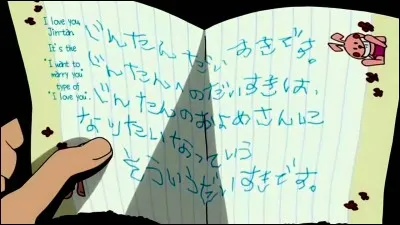 I love you,
Jintan
It's the
"I want to
marry you"
type of
"I love you".
じんたん だいすきです。
じんたんへのだいすきは、
じんたんのおよめさんに
なりたいなっていう
そういうだいすきです。